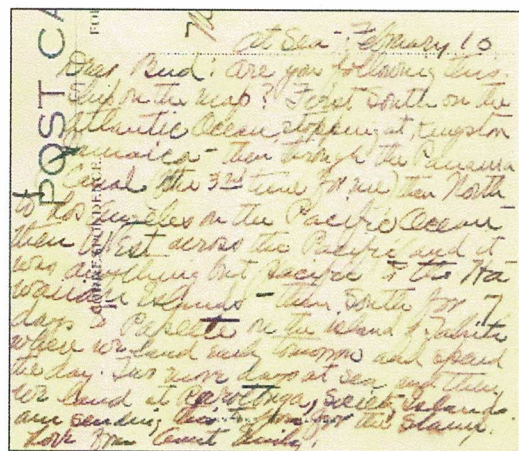 POST CA
CORRESPONDENCE
At Sea - February 10
Dear Bud: Are you following this
ship on the map? First South on the
Atlantic Ocean, stopping at Kingston
Jamaica - then through the Panama
Canal (the 3rd time for me) then North
to Los Angeles on the Pacific Ocean
then West across the Pacific and it
was anything but pacific to the Ha
waiian Islands - then South for 7
days to Papeete on the island of Tahiti
where we land early tomorrow and spend
the day. Two more days at sea and then
we land at Rarotonga, Society Islands
am sending this to you for the stamp.
Love from Aunt Emily.